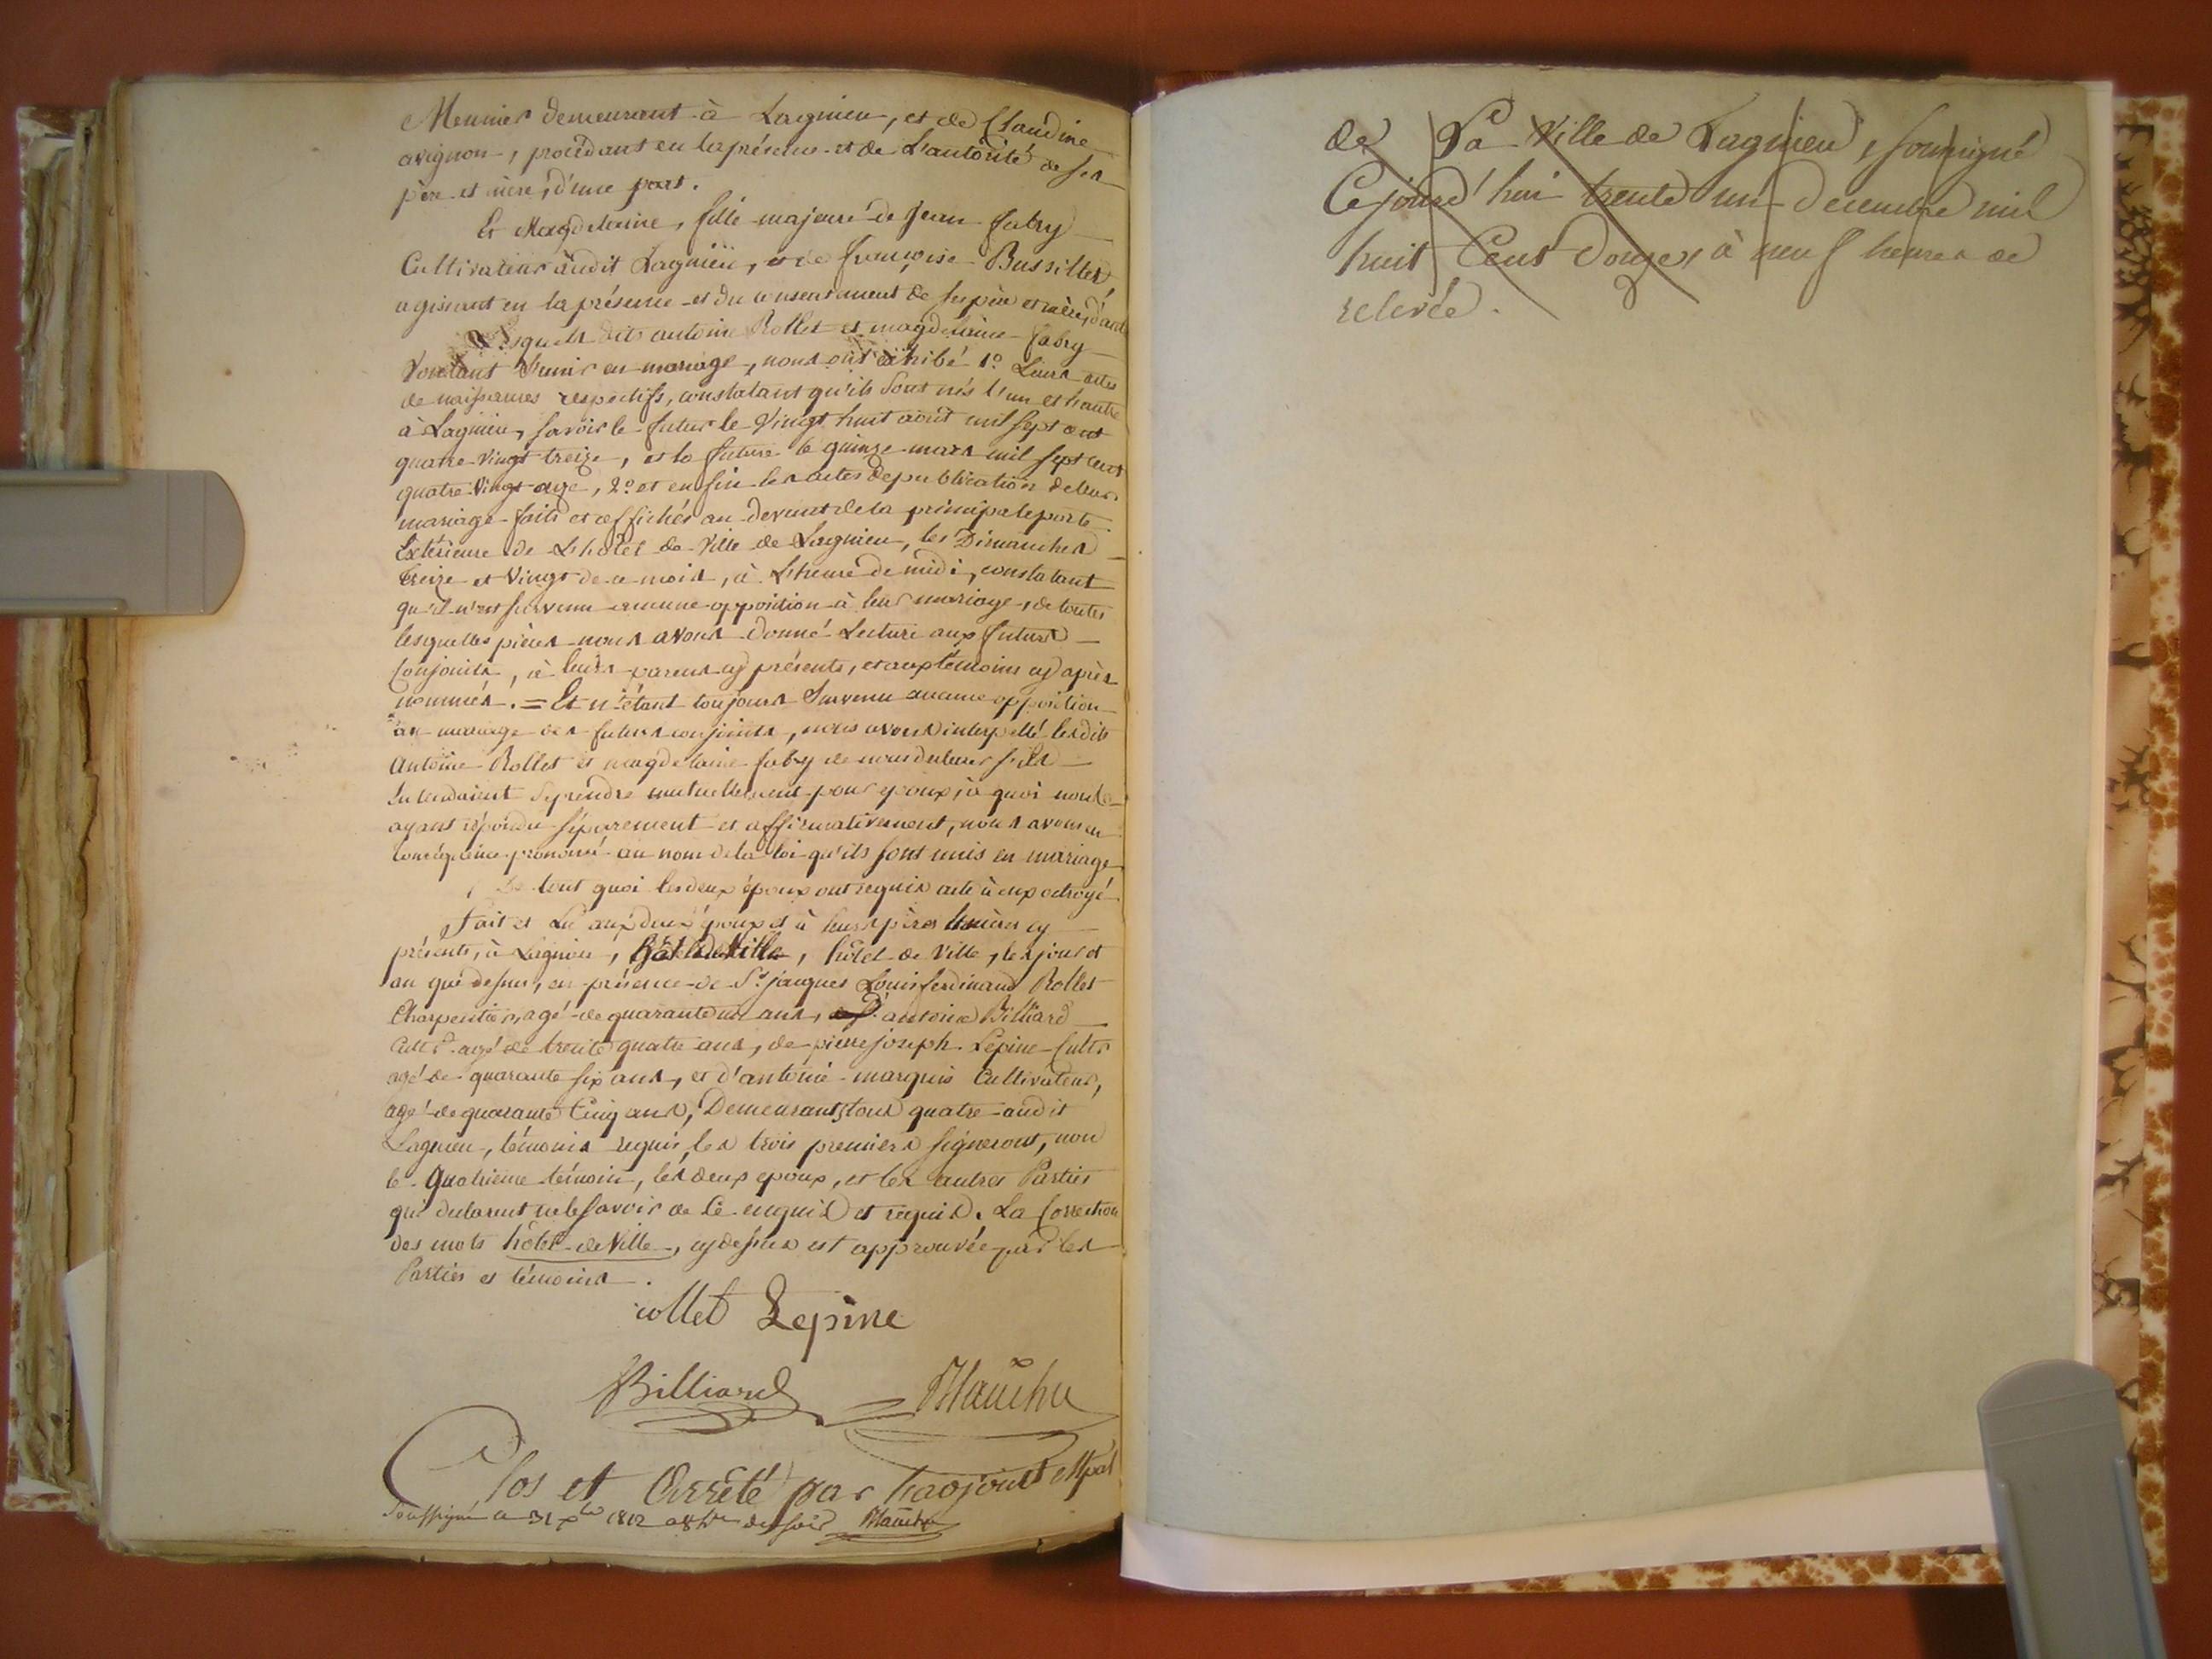 Meunier demeurant à Lagnieu, et de Claudine
avignon, procédant en la présence et de L'autorité de ses
père et mère, d'une part.
Et Magdelaine, fille majeure de Jean fabry
Cultivateur audit Lagnieu, et de françoise Bussillet,
agissant en la présence et du consentement de ses père et mère, d'autre
Lesquels dits antoine Rollet et magdelaine fabry
Voulant s'unir en mariage, nous ont exhibé 1º Leurs actes
de naissances respectifs, constatant qu'ils sont nés l'un et l'autre
à Lagnieu, savoir le futur le Vingt huit août mil sept cent
quatre Vingt treize, et la future le quinze mars mil sept cent
quatre Vingt onze, 2º et enfin les actes de publication de leur
mariage faits et affichés au devant de la principale porte
Extérieure de L'hôtel de Ville de Lagnieu, les Dimanches
treize et Vingt de ce mois, à L'heure de midi, constatant
qu'il n'est survenu aucune opposition à leur mariage, de toutes
lesquelles pièces nous avons donné Lecture aux futurs
Conjoints, à leurs parens cy présents, et aux témoins cy après
nommés. = Et n'étant toujours Survenu aucune opposition
au mariage des futurs conjoints, nous avons interpellé lesdits
Antoine Rollet et magdelaine fabry de nous déclarer s'ils
Entendaient se prendre mutuellement pour époux, à quoi nous
ayant répondu séparement et affirmativement, nous avons en
conséquence prononcé au nom de la loi qu'ils sont unis en mariage
De tout quoi les deux époux ont requis acte à eux octroyé
Fait et Lu aux deux époux et à leurs pères et mères cy
présents, à Lagnieu, hôtel de Ville, le jour et
an que dessus, en présence de Sr jacques Louis ferdinand Rollet
Charpentier, agé de quarante un ans, antoine Billiard
Cultr agé de trente quatre ans, de pierre joseph Lépine Cultr
agé de quarante six ans, et d'antoine marquis Cultivateur,
agé de quarante Cinq ans, Demeurants tous quatre audit
Lagnieu, témoins requis, les trois premiers signeront, non
le Quatrieme témoin, les deux epoux, et les autres Parties
qui déclarent ne le savoir de ce enquis et requis. La Correction
des mots hôtel de Ville, cy dessus est approuvée par les
Parties et témoins.
rollet Lepine
Billiard
Clos et Arrêté par L'adjoint
Soussigné ce 31 xbre 1812 a 8 hres du soir
de La Ville de Lagnieu, soussigné
Cejourd'hui trente un Decembre mil
huit Cent Douze, à neuf heures de
relevée.